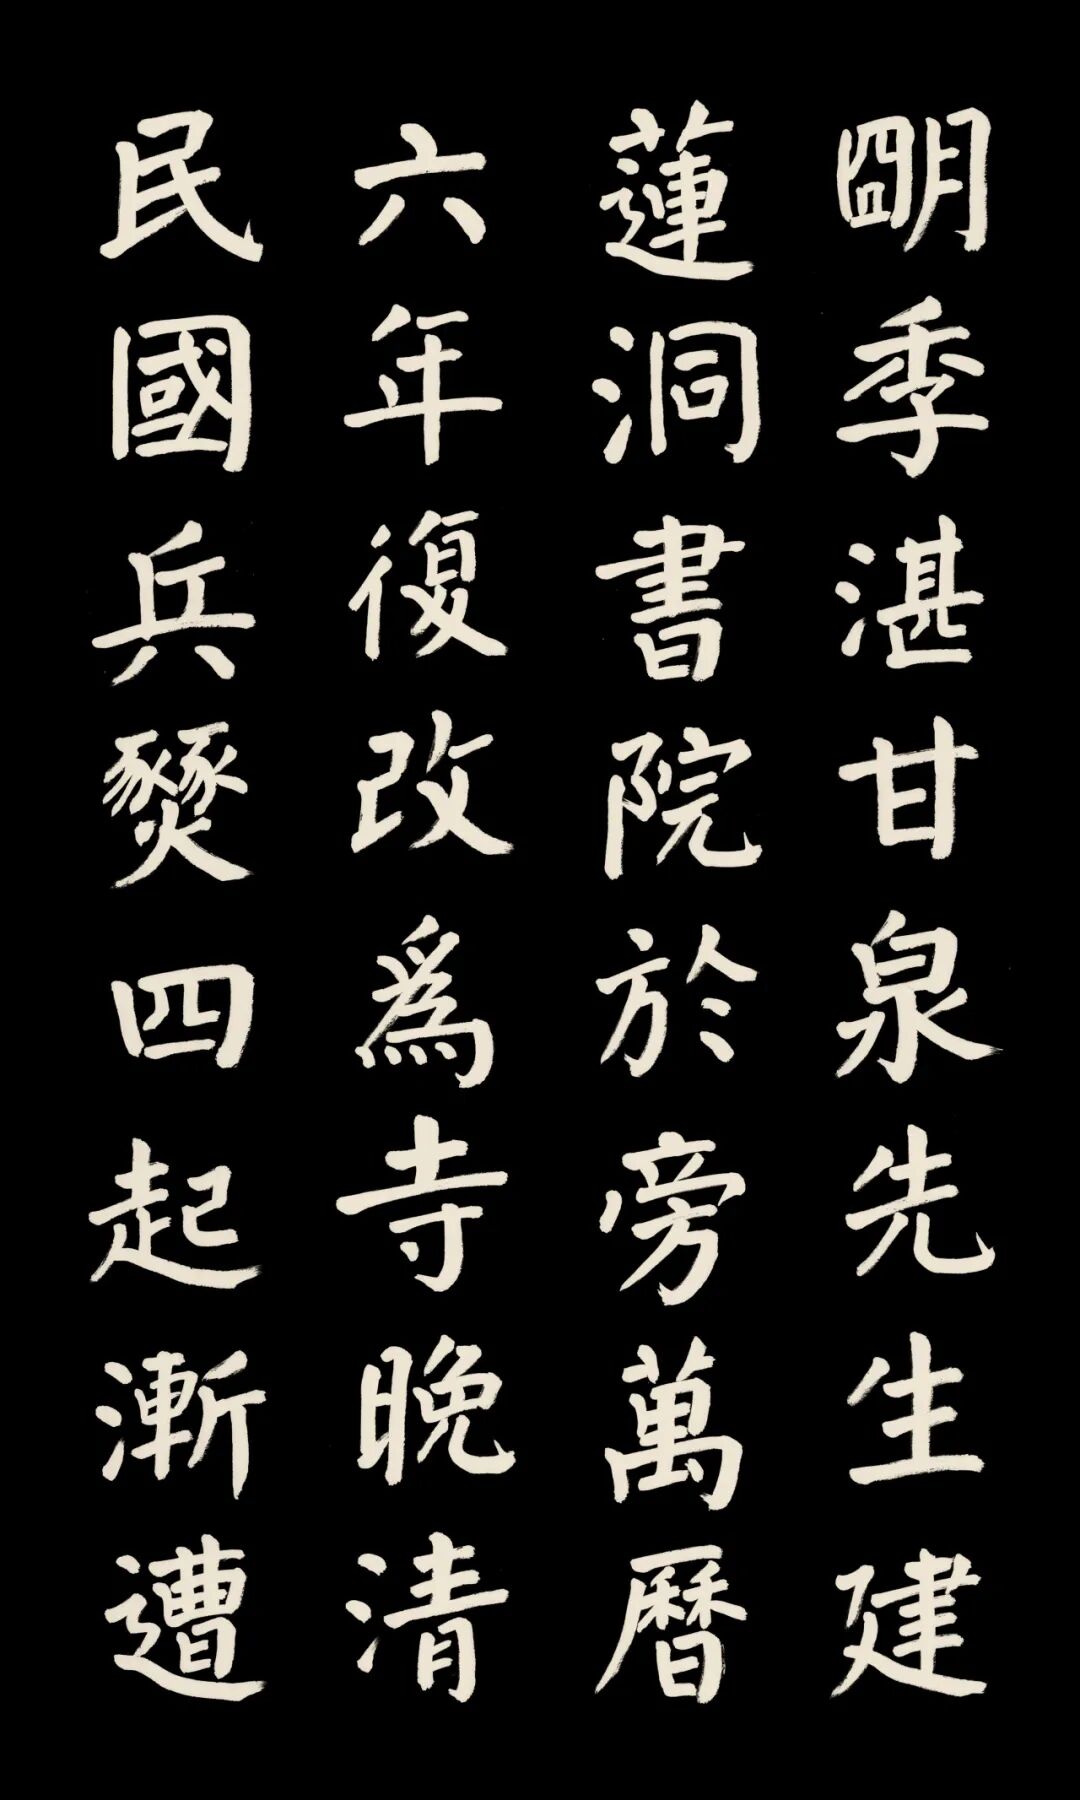 朙季湛甘泉先生建
蓮洞書院於旁萬曆
六年復改爲寺晚清
民國兵燹四起漸遭